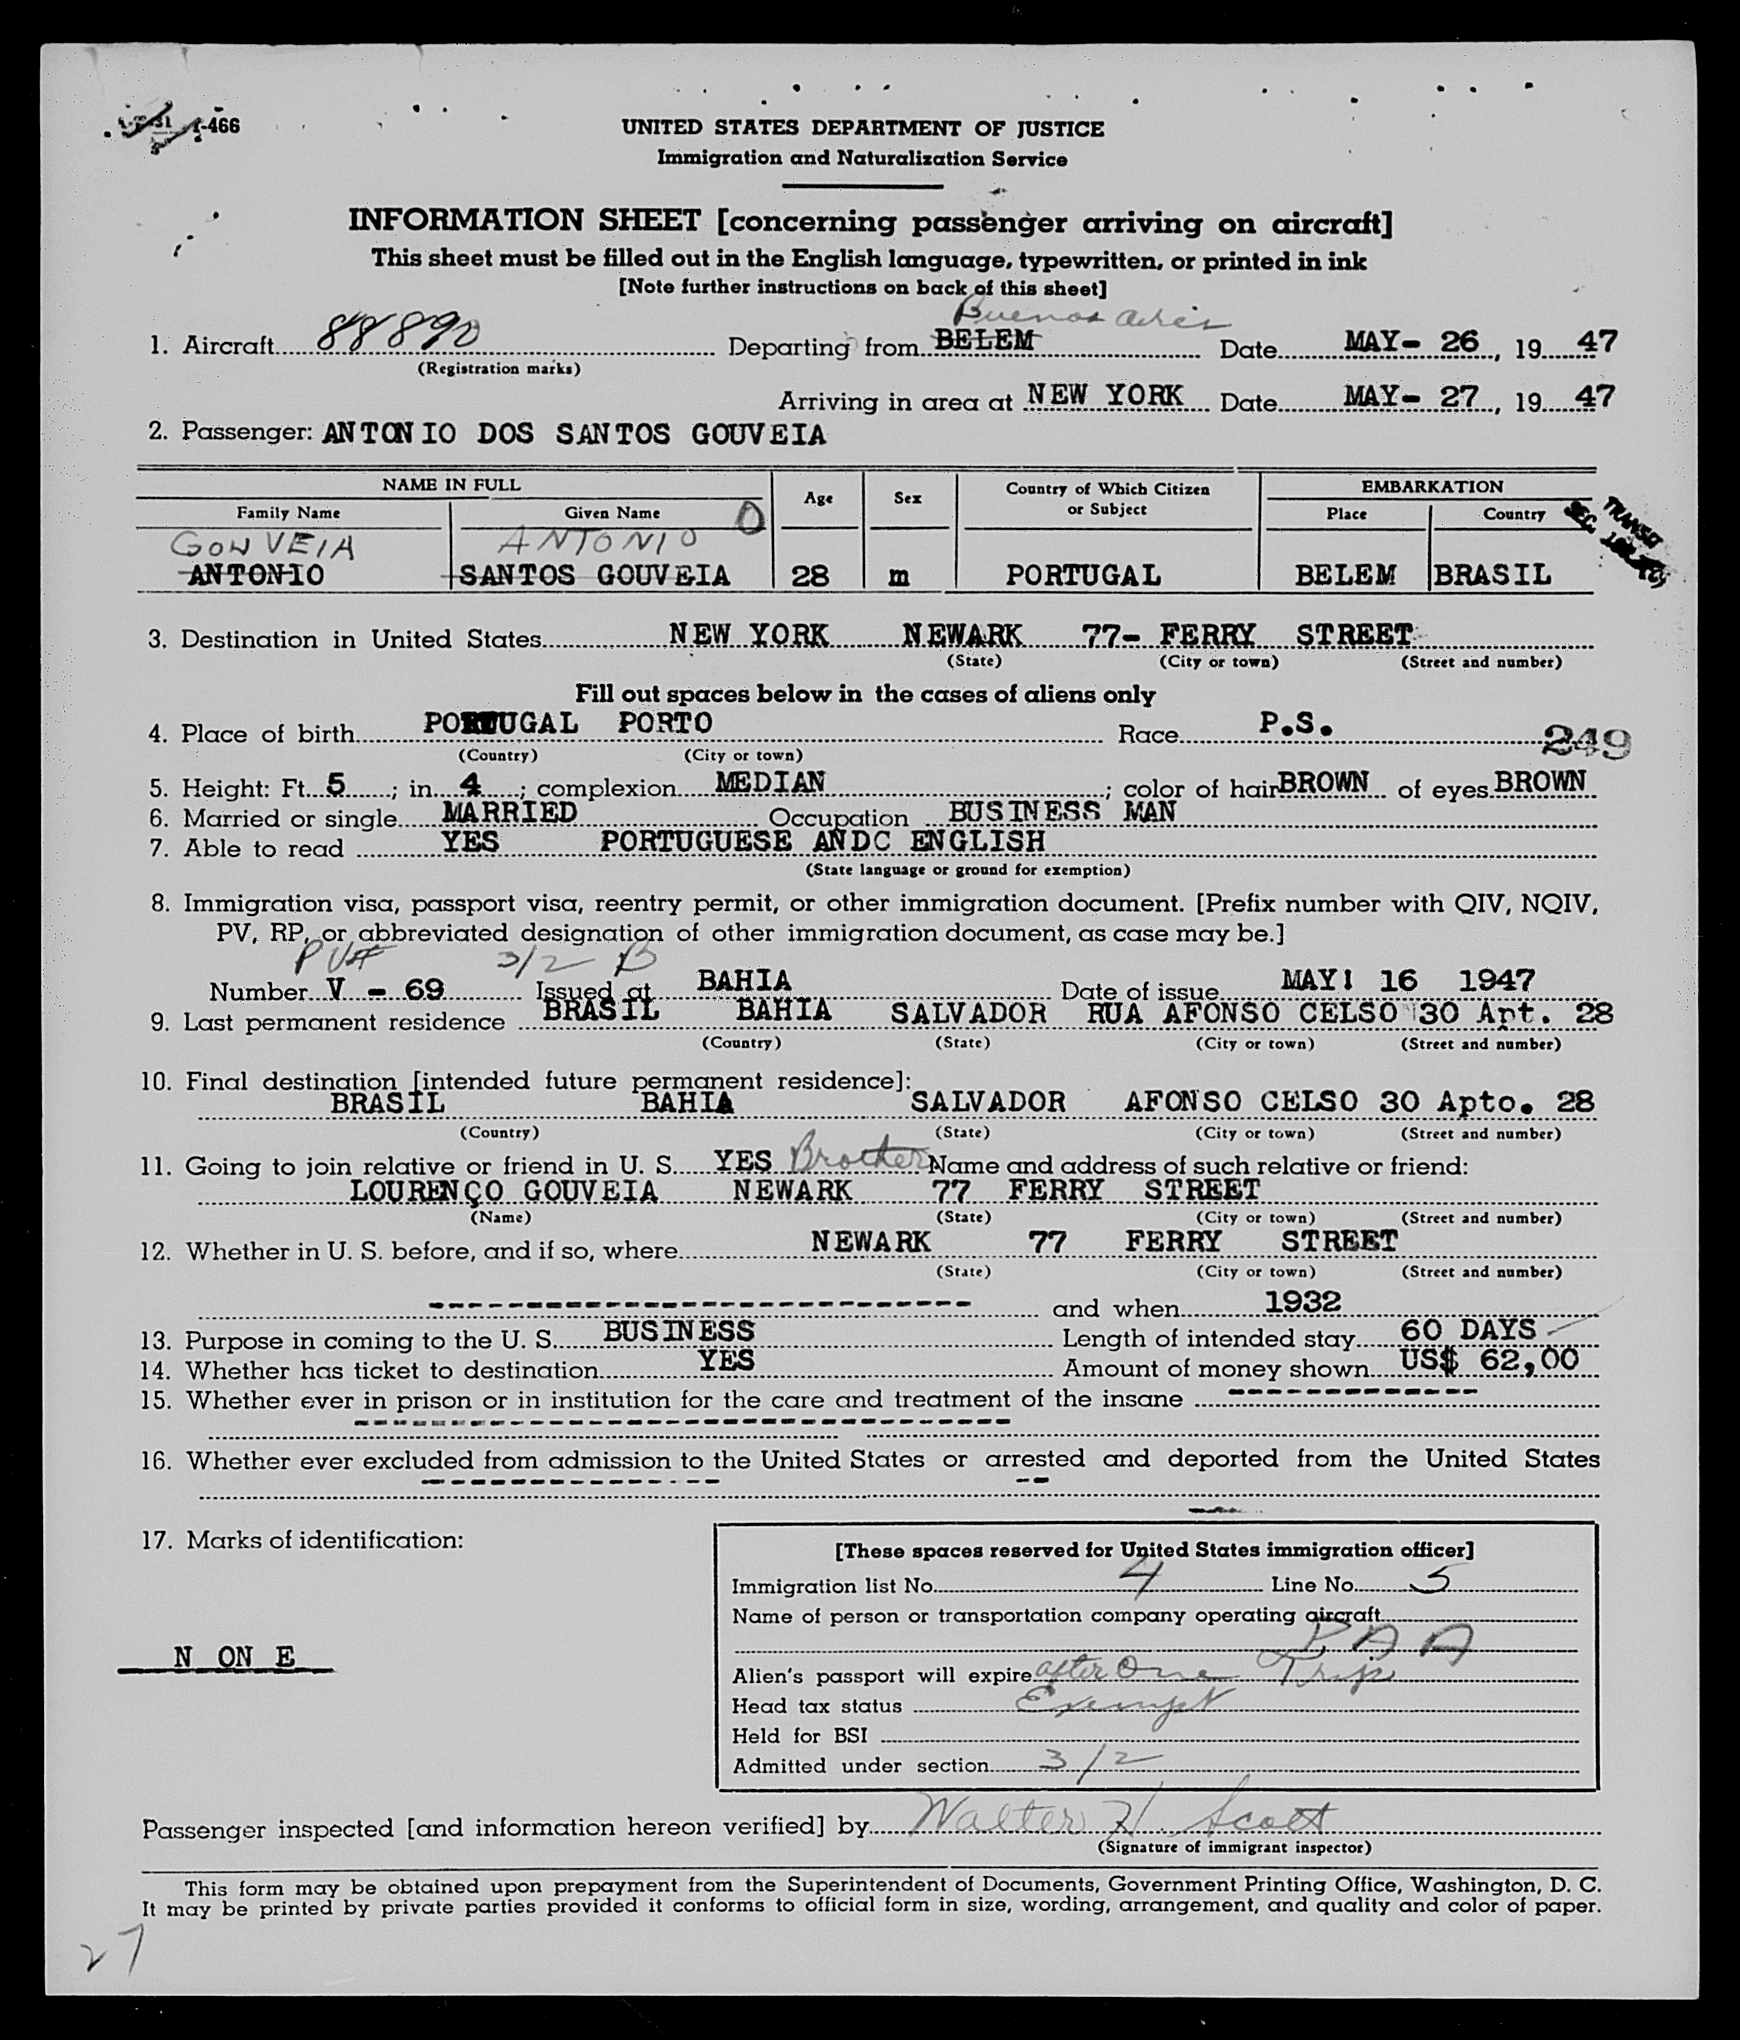 I-466
UNITED STATES DEPARTMENT OF JUSTICE
Immigration and Naturalization Service
INFORMATION SHEET [concerning passenger arriving on aircraft]
This sheet must be filled out in the English language, typewritten, or printed in ink
[Note further instructions on back of this sheet]
Buenos Aires
1. Aircraft 88890 Departing from BELEM Date MAY- 26, 19 47
(Registration marks)
Arriving in area at NEW YORK Date MAY- 27, 19 47
2. Passenger: ANTONIO DOS SANTOS GOUVEIA
NAME IN FULL Age Sex Country of Which Citizen or Subject EMBARKATION
Family Name Given Name O Place Country
GOUVEIA ANTONIO
ANTONIO SANTOS GOUVEIA 28 m PORTUGAL BELEM BRASIL
3. Destination in United States NEW YORK NEWARK 77- FERRY STREET
(State) (City or town) (Street and number)
Fill out spaces below in the cases of aliens only
4. Place of birth PORTUGAL PORTO Race P.S. 249
(Country) (City or town)
5. Height: Ft. 5; in. 4; complexion MEDIAN; color of hair BROWN of eyes BROWN
6. Married or single MARRIED Occupation BUSINESS MAN
7. Able to read YES PORTUGUESE ANDC ENGLISH
(State language or ground for exemption)
8. Immigration visa, passport visa, reentry permit, or other immigration document. [Prefix number with QIV, NQIV,
PV, RP, or abbreviated designation of other immigration document, as case may be.]
PV# 3/2 B
Number V - 69 Issued at BAHIA Date of issue MAY! 16 1947
9. Last permanent residence BRASIL BAHIA SALVADOR RUA AFONSO CELSO 30 Apt. 28
(Country) (State) (City or town) (Street and number)
10. Final destination [intended future permanent residence]:
BRASIL BAHIA SALVADOR AFONSO CELSO 30 Apto. 28
(Country) (State) (City or town) (Street and number)
11. Going to join relative or friend in U. S. YES Brother Name and address of such relative or friend:
LOURENÇO GOUVEIA NEWARK 77 FERRY STREET
(Name) (State) (City or town) (Street and number)
12. Whether in U. S. before, and if so, where NEWARK 77 FERRY STREET
(State) (City or town) (Street and number)
---------------------------- and when 1932
13. Purpose in coming to the U. S. BUSINESS Length of intended stay 60 DAYS
14. Whether has ticket to destination YES Amount of money shown US$ 62,00
15. Whether ever in prison or in institution for the care and treatment of the insane -------------
----------------------------------
16. Whether ever excluded from admission to the United States or arrested and deported from the United States
---------------- --
17. Marks of identification:
N ON E
[These spaces reserved for United States immigration officer]
Immigration list No. 4 Line No. 5
Name of person or transportation company operating aircraft
P A A
Alien's passport will expire after One Trip
Head tax status Exempt
Held for BSI
Admitted under section 3/2
Passenger inspected [and information hereon verified] by Walter H. Scott
(Signature of immigrant inspector)
This form may be obtained upon prepayment from the Superintendent of Documents, Government Printing Office, Washington, D. C.
It may be printed by private parties provided it conforms to official form in size, wording, arrangement, and quality and color of paper.
27